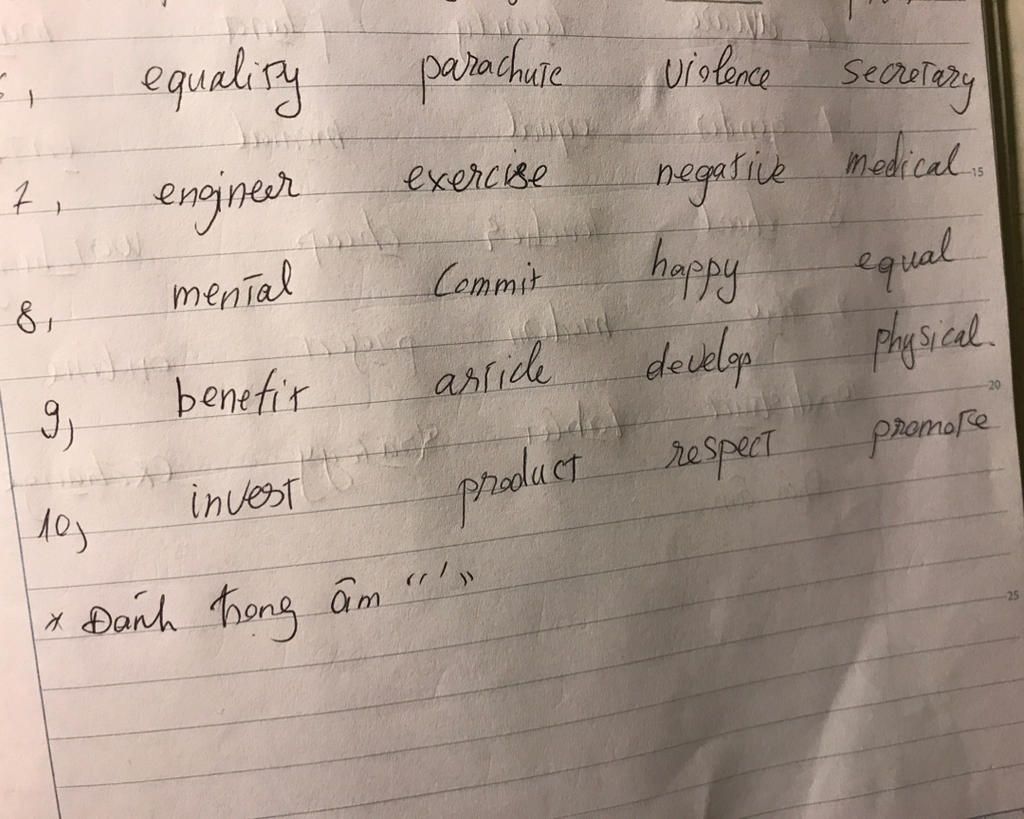 equality parachute violence secretary
7, engineer exercise negative medical 15
8, mental commit happy equal
9, benefit article develop physical.
20
10, invest product respect promote
* Đánh trọng âm "'"
25